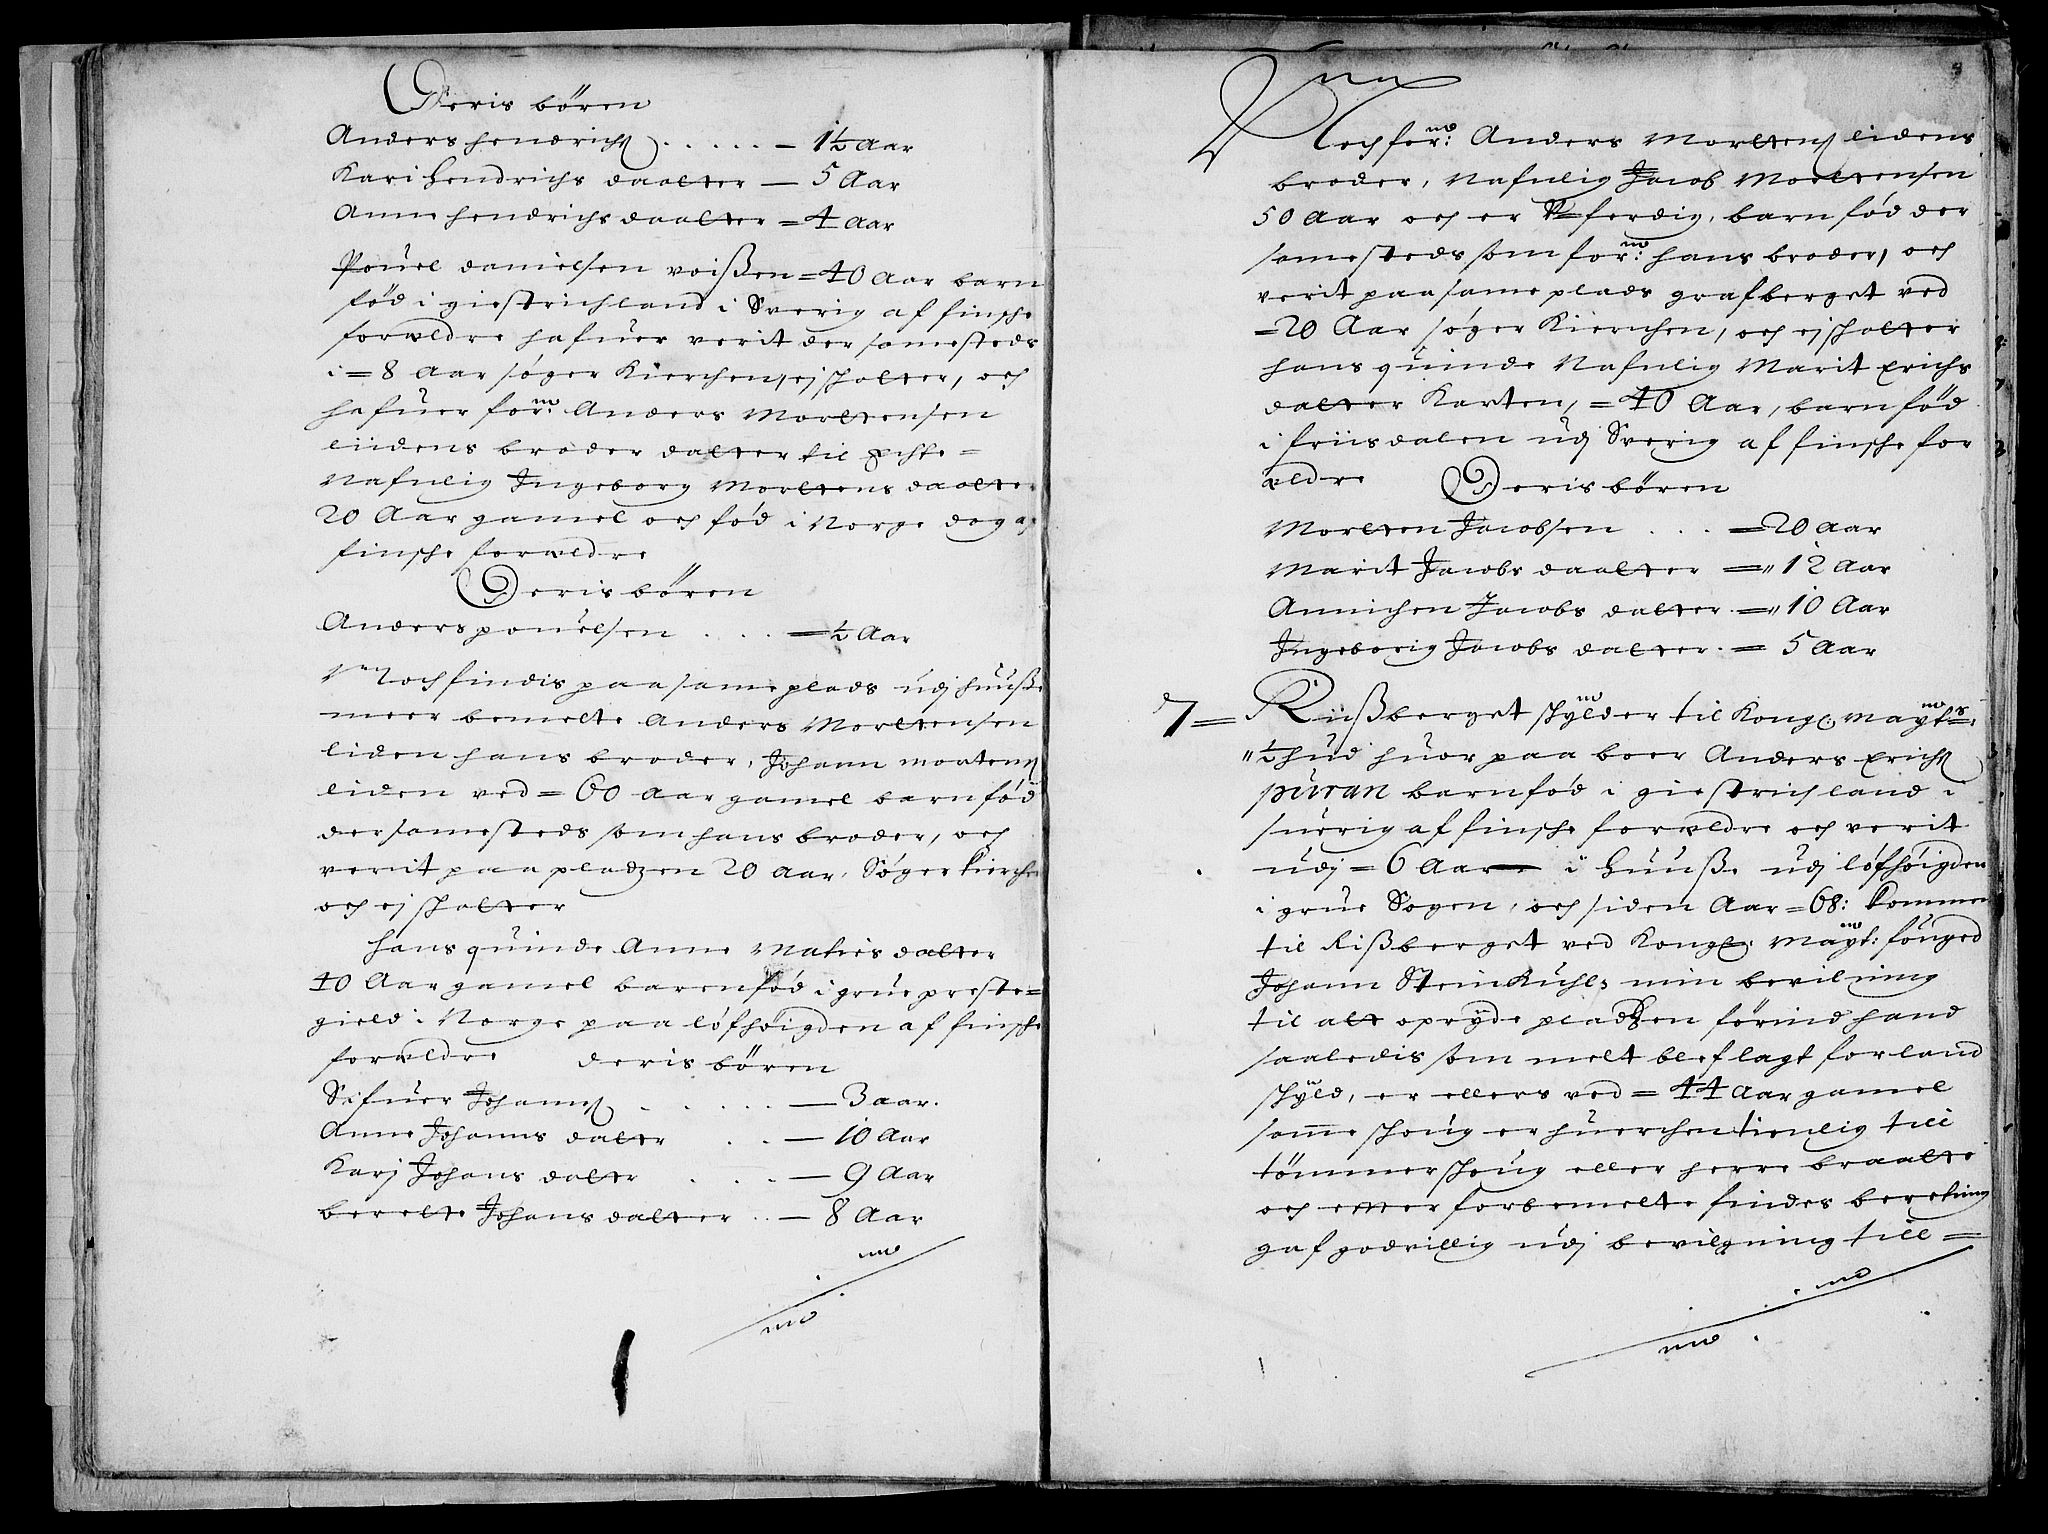 Deris bören
Anders hendrichs ..... — 1½ Aar
Kari hendrichs daatter — 5 Aar
Anne hendrichs daatter = 4 Aar
Pouel danielsen voißen = 40 Aar barn
fød i giestrichland i Sverig af finsche
forældre hafuer verit der samesteds
i = 8 Aar søger Kierchen, ej schatter, och
hafuer for: Anders Mortensen
liidens broder datter til echte =
Nafnlig Ingeborg Mortens daatter
20 Aar gamel och fød i Norge dog af
finsche forældre
Deris bören
Anders pouelsen .... — ½ Aar
Noch findis paa same plads udj huuße
meer bemelte Anders Mortensen
liden hans broder, Johann mortens
liden ved = 60 Aar gamel barnfød
der samesteds som hans broder, och
verit paa pladzen 20 Aar, Søger kierche
och ej schatter
hans quinde Anne Maties datter
40 Aar gamel barenfød i grue preste=
gield i Norge paa løfhøigden af finsche
forældre deris bören
Sifuer Johanns ..... — 3 aar.
Anne Johanns datter .. — 10 Aar
Karj Johans datter ... — 9 Aar
berette Johans datter .. — 8 Aar
Noch for: Anders Mortens lidens
broder, Nafnlig Jacob Mortensen
50 Aar och er V=ferdig, barnfød der
samesteds som for: hans broder, och
verit paa same plads grafberget ved
=20 Aar søger Kierchen, och ej schatter
hans quinde Nafnlig Marit Erichs
datter Karten, = 40 Aar, barnfød
i friisdalen udj Sverig af finsche for
ældre Deris bören
Morten Jacobsen ... = 20 Aar
Marit Jacobs daatter = 12 Aar
Annichen Jacobs datter. = 10 Aar
Ingeborig Jacobs datter. = 5 Aar
7 = Riißberget schylder til Kong: mayts:
½ hud huor paa boer Anders Erichs
puran barnfød i giestrichland i
suerig af finsche forældre och verit
udj = 6 Aar i huuße udj løfhøigden
i grue Sogen, och siden Aar = 68: kommen
til Rißberget ved Kongl: Mayt: fouged
Johann Steinkuhls min bevilning
til att oprÿde pladzen förind hand
saaledis som melt blef lagt for land
schyld, er ellers ved = 44 Aar gamel
samme schoug er huerchen tienlig till
tömmerschoug eller herre braatte
och etter forbemelte findes beretning
gaf godvillig udj bevilgning till =